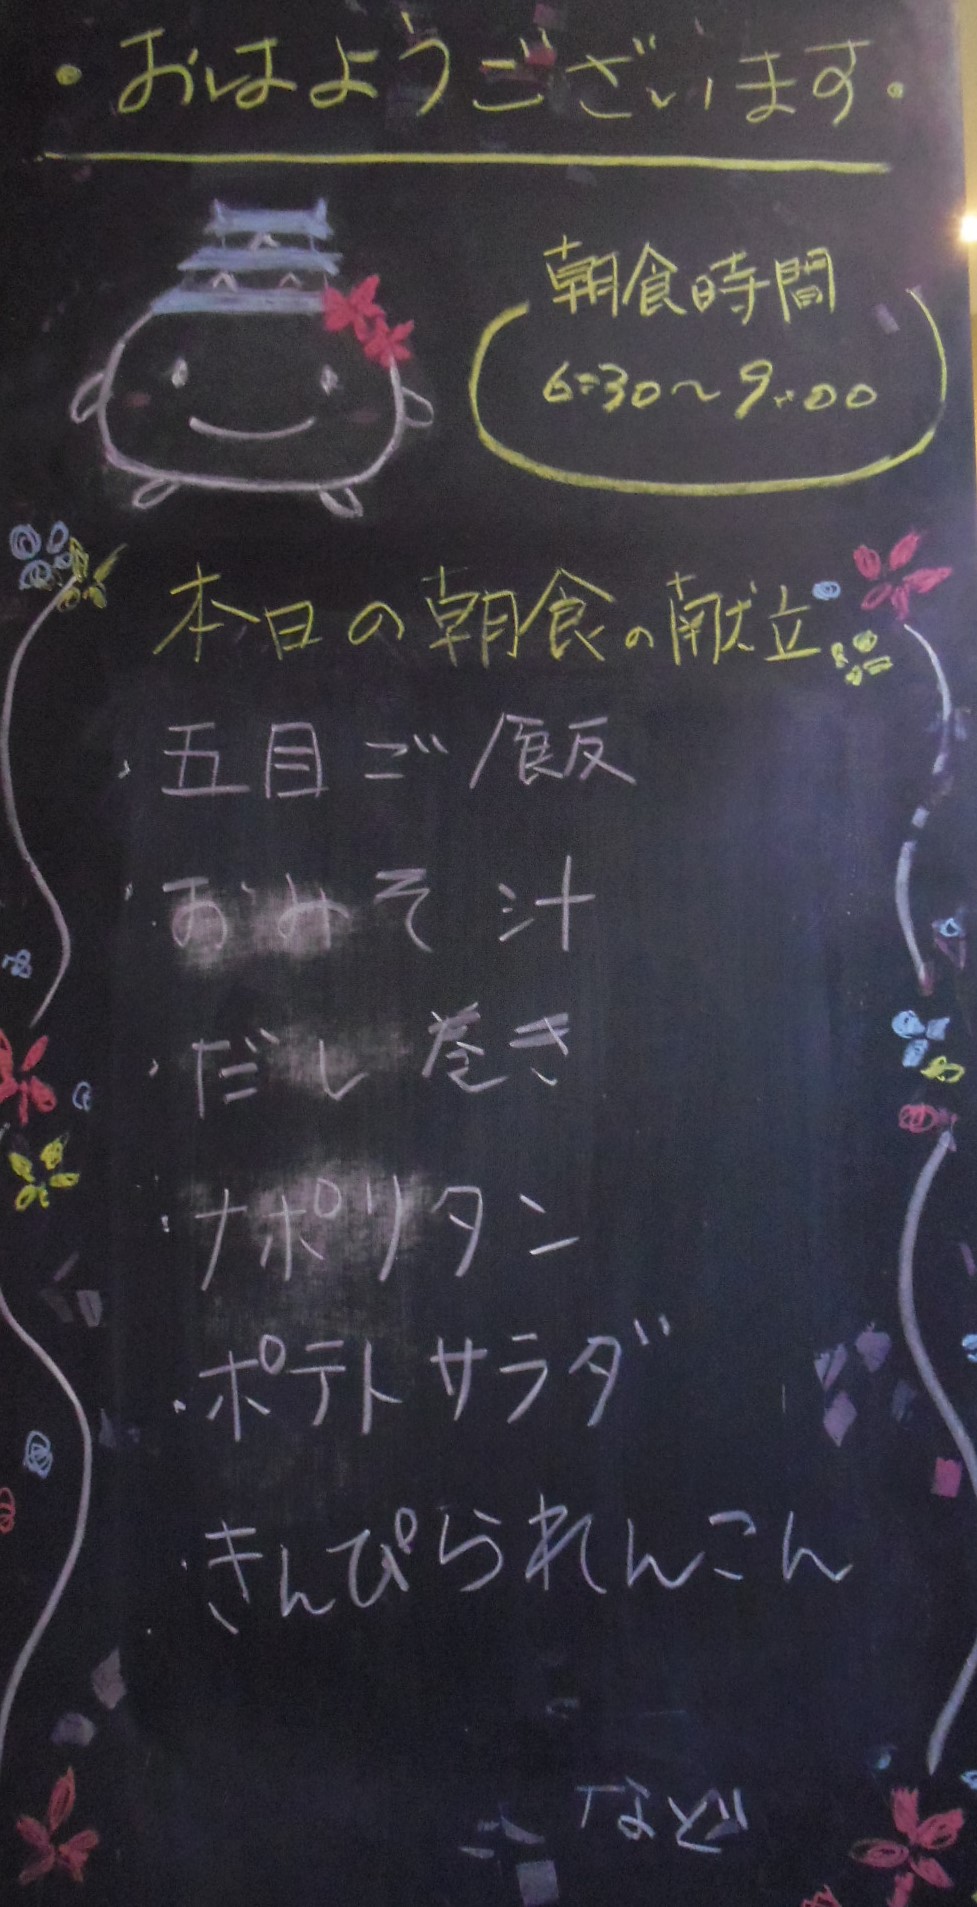 ・おはようございます・
朝食時間
6:30～9:00
本日の朝食の献立
・五目ご飯
・おみそ汁
・だし巻き
・ナポリタン
・ポテトサラダ
・きんぴられんこん
など